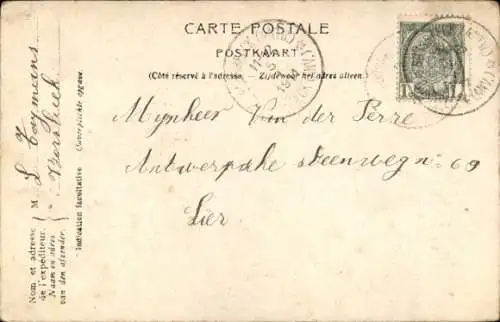 CARTE POSTALE
POSTKAART
(Côté réservé à l'adresse. Zijde voor het adres alleen.)
Mynheer Van der Perre
Antwerpsche steenweg nº 69
Lier
Nom et adresse
de l'expéditeur.
Naam en adres
van den afzender.
M. L
Indication facultative (Onverplichte opgave